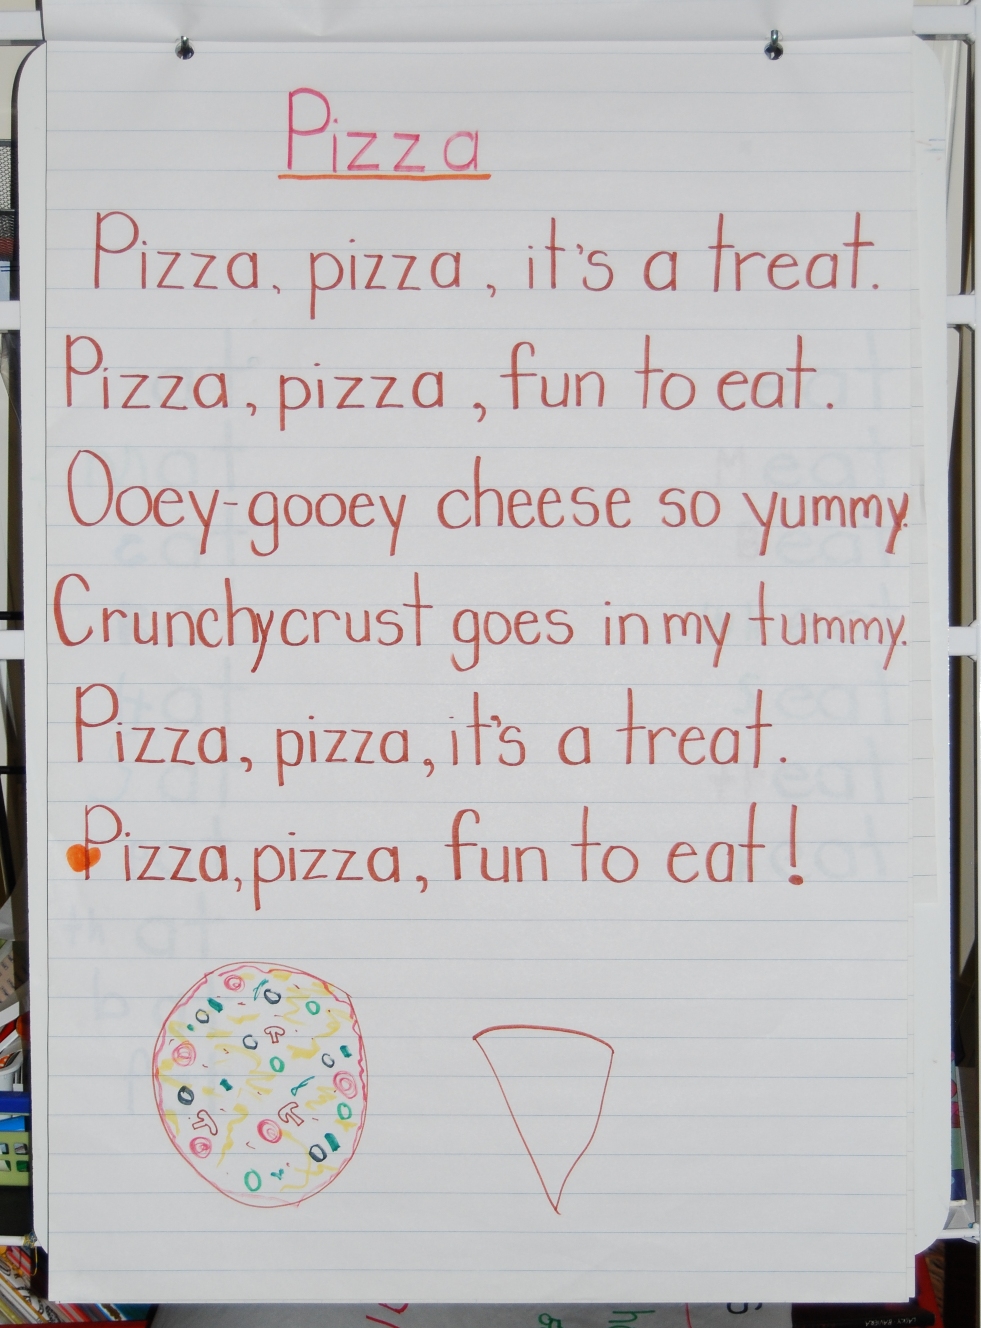 Pizza
Pizza, pizza, it's a treat.
Pizza, pizza, fun to eat.
Ooey-gooey cheese so yummy.
Crunchy crust goes in my tummy.
Pizza, pizza, it's a treat.
Pizza, pizza, fun to eat!